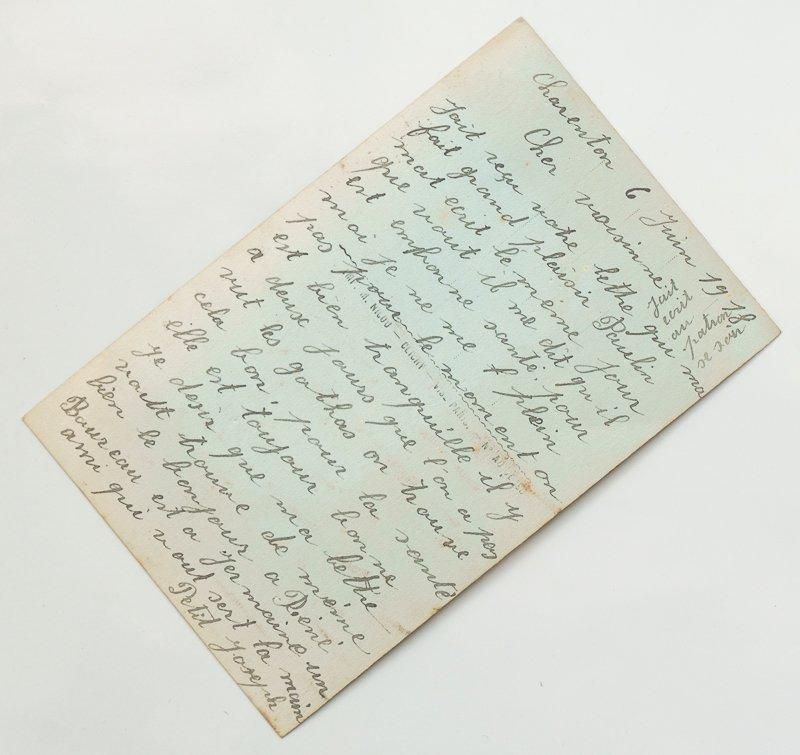 Charenton 6 Juin 1918
Cher voisinne
Jait reçu votre lettre qui ma
fait grand plaisir Paulin
mat ecrit le meme jour
que vout il me dit qu'il
est en bonne santé. pour
moi je ne me f plein
pas pour le moment on
est bien tranquille il y
a deux jours que l'on a pas
vut les gothas on trouve
cela bon, pour la santé
elle est toujour bonne
je desir que ma lettre
vault trouve de meine
bien le bonjour a Réné
Boureau est a Jermaine un
ami qui vout sert la main
Petit Joseph
Jait
ecrit
au
patron
se soir